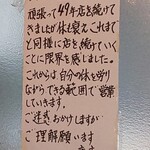 頑張って49年店を続けて
きましたが体も衰えこれまで
と同様に店を続けていく
ことに限界を感じました。
これからは自分の体を労り
ながらできる範囲で営業
していきます。
ご迷惑おかけしますが
ご理解願います